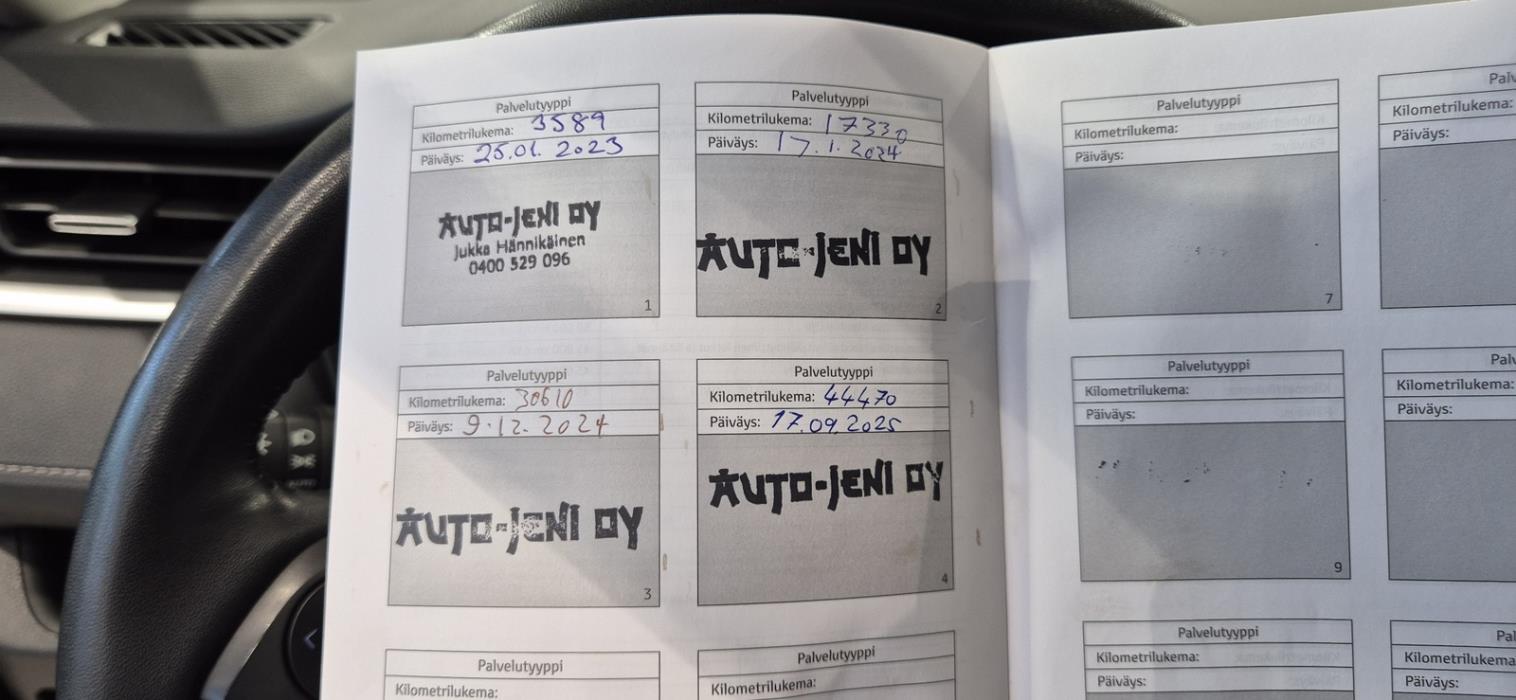 Palvelutyyppi
Kilometrilukema: 3589
Päiväys: 25.01.2023
AUTO-JENI OY
Jukka Hännikäinen
0400 529 096
1
Palvelutyyppi
Kilometrilukema: 17330
Päiväys: 17.1.2024
AUTO-JENI OY
2
Palvelutyyppi
Kilometrilukema: 30610
Päiväys: 9.12.2024
AUTO-JENI OY
3
Palvelutyyppi
Kilometrilukema: 44470
Päiväys: 17.09.2025
AUTO-JENI OY
4
Palvelutyyppi
Kilometrilukema:
Palvelutyyppi
Kilometrilukema:
Palvelutyyppi
Kilometrilukema:
Päiväys:
7
Palv
Kilometrilukema:
Päiväys:
Palvelutyyppi
Kilometrilukema:
Päiväys:
9
Palv
Kilometrilukema:
Päiväys:
Palvelutyyppi
Kilometrilukema:
Päiväys:
Pal
Kilometrilukema
Päiväys:
AUTO